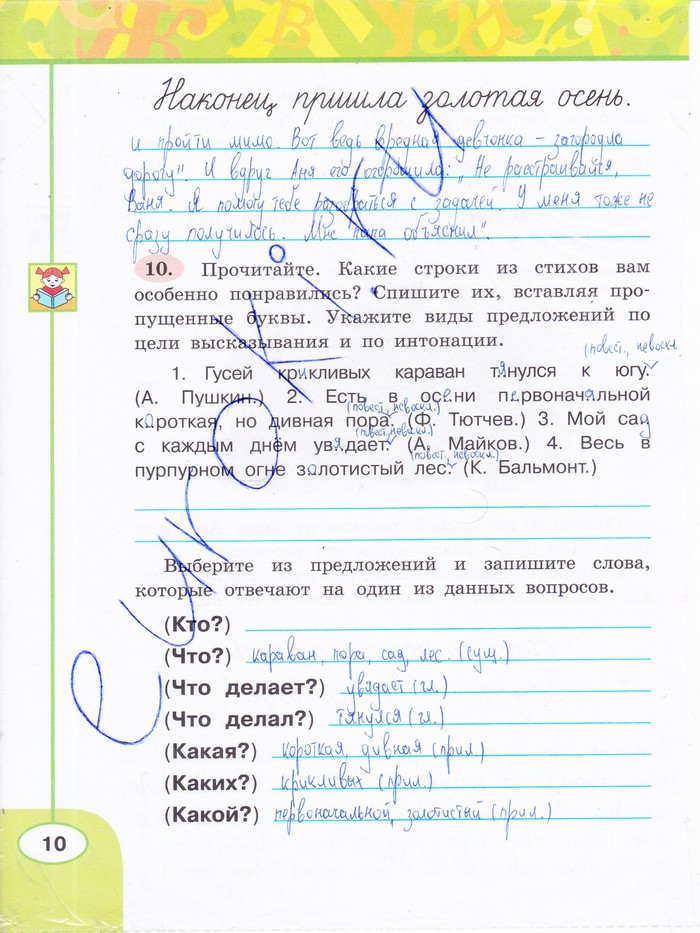 Наконец пришла золотая осень.
и пройти мимо. Вот ведь вредная девчонка – загородила
дорогу". И вдруг Аня его огорошила: „Не расстраивайся,
Ваня. Я помогу тебе разобраться с задачей. У меня тоже не
сразу получилось. Мне папа объяснил".
10. Прочитайте. Какие строки из стихов вам
особенно понравились? Спишите их, вставляя про-
пущенные буквы. Укажите виды предложений по
цели высказывания и по интонации.
(повест., невоскл.
1. Гусей крикливых караван тянулся к югу.
(А. Пушкин.) 2. Есть в осени первоначальной
(повест., невоскл.)
короткая, но дивная пора. (Ф. Тютчев.) 3. Мой сад
(повест., невоскл.)
с каждым днём увядает. (А. Майков.) 4. Весь в
(повест., невоскл.)
пурпурном огне золотистый лес. (К. Бальмонт.)
Выберите из предложений и запишите слова,
которые отвечают на один из данных вопросов.
(Кто?)
(Что?) караван, пора, сад, лес. (сущ.)
(Что делает?) увядает (гл.)
(Что делал?) тянулся (гл.)
(Какая?) короткая, дивная (прил)
(Каких?) крикливых (прил.)
(Какой?) первоначальной, золотистый (прил.)
10
euroki.ru